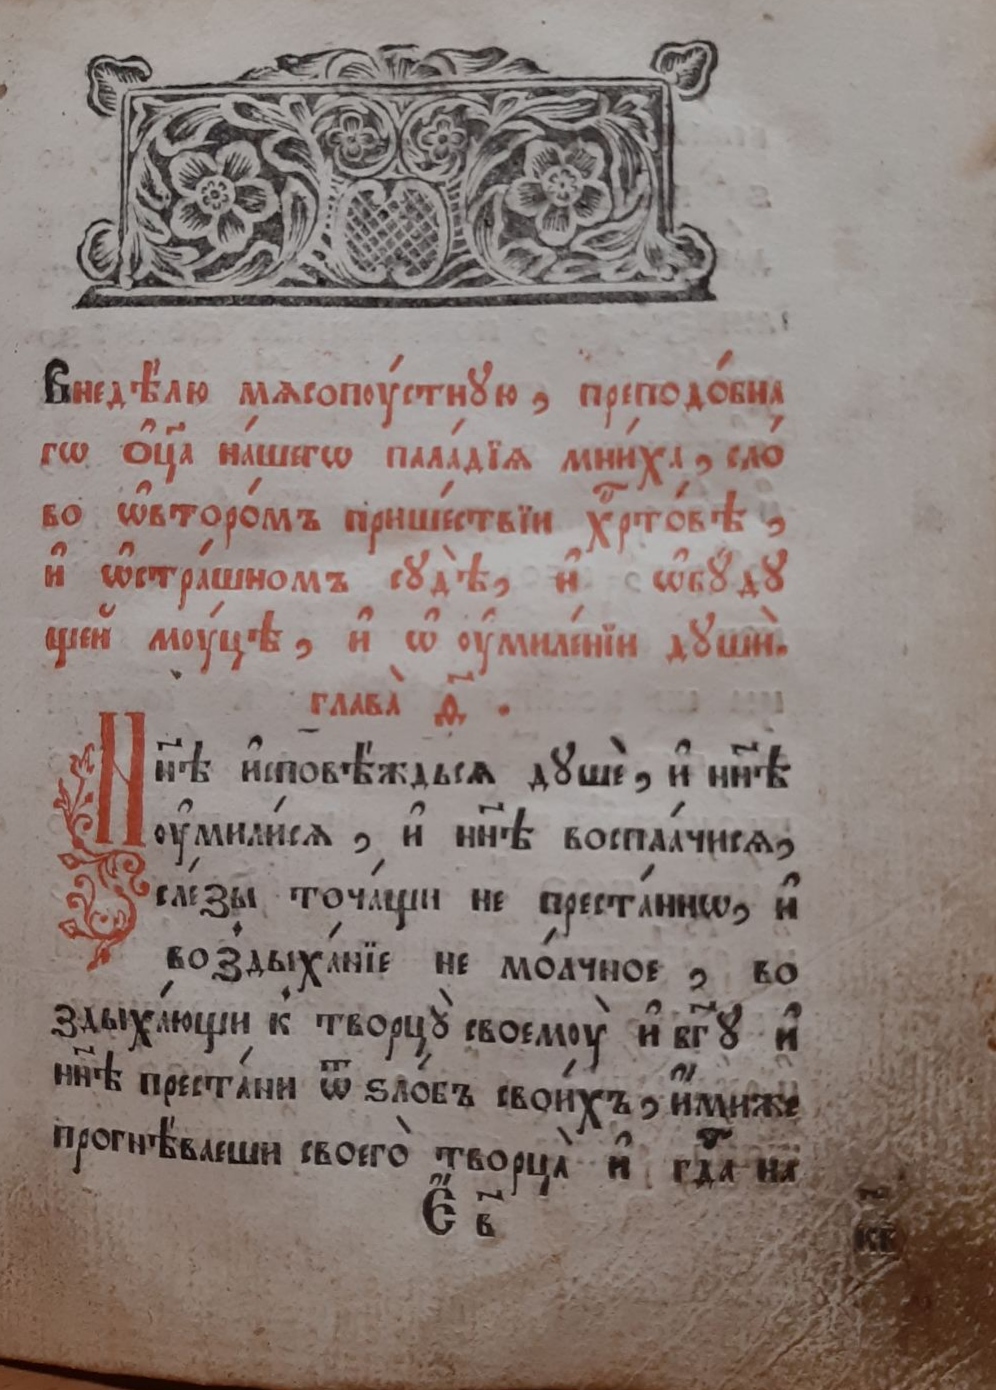 Внедѣ́лю мѧсопꙋ́стнꙋю, преподо́бна
гѡ ѻ҆ц҃а на́шегѡ пала́дїѧ мни́ха, сло́
во ѡ҆второ́мъ прише́ствїи хрⷭ҇то́вѣ,
и҆ ѡ҆стра́шномъ сꙋдѣ̀, и҆ ѡ҆бꙋ́дꙋ
щей моу́цѣ, и҆ ѡ҆ оу҆миле́нїи дꙋшѝ.
глава̀ д҃.
Нн҃ѣ и҆сповѣ́ждьсѧ дꙋшѐ, и҆ нн҃ѣ
оу҆мили́сѧ, и҆ нн҃ѣ воспла́чисѧ,
сле́зы точа́щи не преста́ннѡ, и҆
воздыха́нїе не мо́лчное, во
здыха́ющи к творцꙋ̀ своемоу̀ и҆ бг҃ꙋ и҆
нн҃ѣ преста́ни ѿ ѕло́бъ свои́хъ, и҆́миже
прогнѣ́ваеши своего̀ творца̀ и҆ гдⷭ҇а на
Е҃ в҃
к҃в